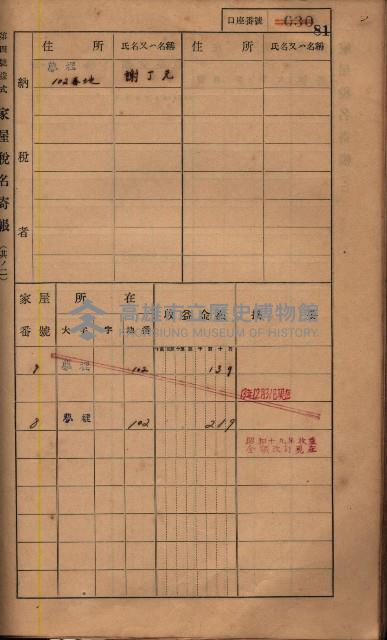 口座番號 030
81
第四號樣式 家屋稅名寄帳 (其ノ二)
納稅者
住所 氏名又ハ名稱 住所 氏名又ハ名稱
102番地 謝丁元
家屋番號 所在 收益金額 摘要
大字 字 地番
8 102 139
8 102 219
昭和十九年收益
金額改訂現在
高雄市立歷史博物館
KAOHSIUNG MUSEUM OF HISTORY